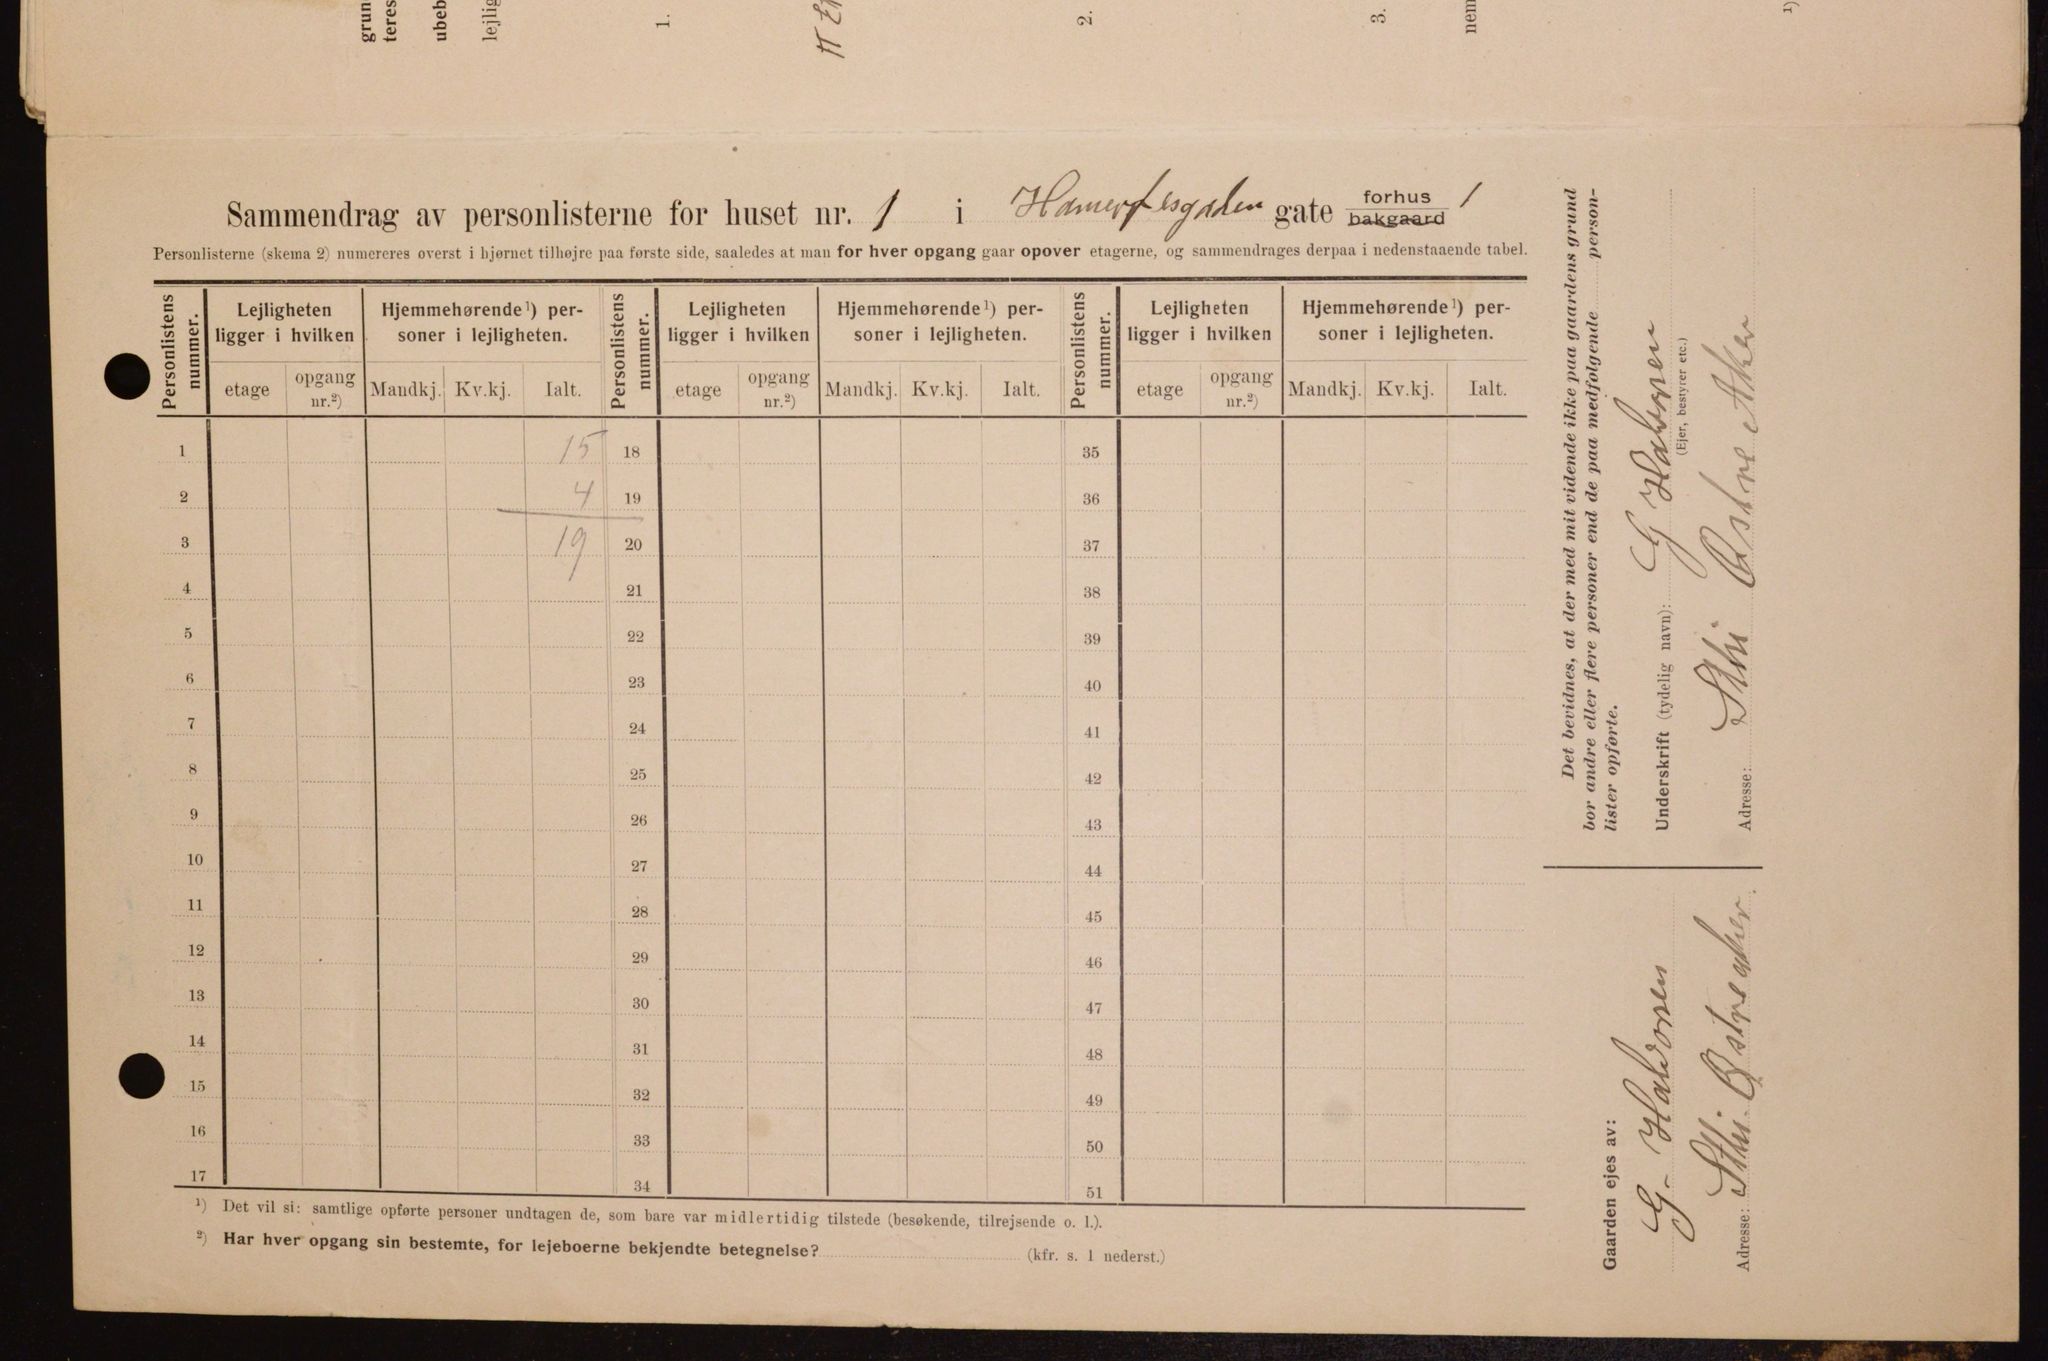 grun
teres
ubeb
lejlig
1.
2.
3.
nem
1)
Sammendrag av personlisterne for huset nr. 1 i Hamerfesgaden gate forhus 1
bakgaard
Personlisterne (skema 2) numereres øverst i hjørnet tilhøjre paa første side, saaledes at man for hver opgang gaar opover etagerne, og sammendrages derpaa i nedenstaaende tabel.
Personlistens nummer. Lejligheten ligger i hvilken Hjemmehørende¹) personer i lejligheten. Personlistens nummer. Lejligheten ligger i hvilken Hjemmehørende¹) personer i lejligheten. Personlistens nummer. Lejligheten ligger i hvilken Hjemmehørende¹) personer i lejligheten.
etage opgang nr.²) Mandkj. Kv.kj. Ialt. etage opgang nr.²) Mandkj. Kv.kj. Ialt. etage opgang nr.²) Mandkj. Kv.kj. Ialt.
1 15 18 35
2 4 19 36
3 19 20 37
4 21 38
5 22 39
6 23 40
7 24 41
8 25 42
9 26 43
10 27 44
11 28 45
12 29 46
13 30 47
14 31 48
15 32 49
16 33 50
17 34 51
¹) Det vil si: samtlige opførte personer undtagen de, som bare var midlertidig tilstede (besøkende, tilrejsende o. l.).
²) Har hver opgang sin bestemte, for lejeboerne bekjendte betegnelse? (kfr. s. 1 nederst.)
Det bevidnes, at der med mit vidende ikke paa gaardens grund
bor andre eller flere personer end de paa medfølgende personlister opførte.
Underskrift (tydelig navn): G Halvorsen
(Ejer, bestyrer etc.)
Adresse: Østre Aker
Gaarden ejes av:
G. Halvorsen
Adresse: Østre Aker